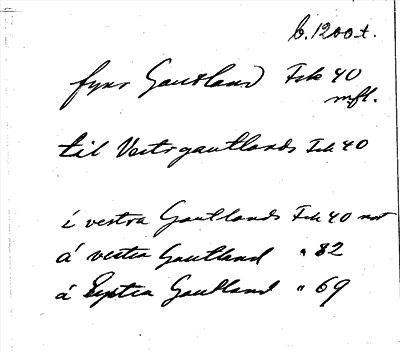 b. 1200 t.
fyrir Gautland Fsk 40
mfl.
til Vestrgautlands Fsk 40
í vestra Gautlands Fsk 40 not
á vestra Gautland " 82
á Eystra Gautland " 69